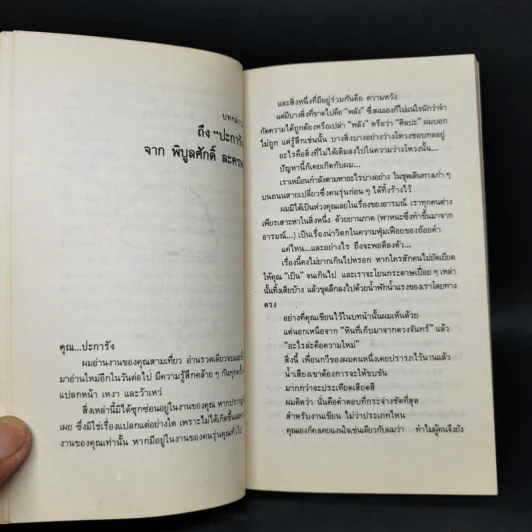 บทกล่าว
ถึง "ปะการัง
จาก พิบูลศักดิ์ ละครพ
คุณ...ปะการัง
ผมอ่านงานของคุณสามเที่ยว อ่านรวดเดียวจบและ
มาอ่านใหม่อีกในวันต่อไป มีความรู้สึกคล้าย ๆ กันทุกครั้ง
แปลกหน้า เหงา และว้าเหว่
สิ่งเหล่านี้มิได้ซุกซ่อนอยู่ในงานของคุณ หากปรากฏ
เผย ซึ่งมิใช่เรื่องแปลกแต่อย่างใด เพราะไม่ได้เกิดขึ้น
งานของคุณเท่านั้น หากมีอยู่ในงานของคนรุ่นคุณทั่วไป
และสิ่งหนึ่งที่มีอยู่ร่วมกันคือ ความหวัง
แต่มีบางสิ่งที่ขาดไปคือ "พลัง" ซึ่งผมเองก็ไม่แน่ใจนักว่าจำ
กัดความได้ถูกต้องหรือเปล่า "พลัง" หรือว่า "ศิลปะ" ผมบอก
ไม่ถูก แต่รู้สึกเช่นนั้น บางสิ่งบางอย่างว่างโหวงชอบกลอยู่
อะไรคือสิ่งที่ไม่ได้เติมลงไปในความว่างโหวงนั้น...
ปัญหานี้ก็เคยเกิดกับผม...
เราเหมือนกำลังตามหาอะไรบางอย่าง ในชุดเดินทางเก่า ๆ
บนถนนสายเปลี่ยวซึ่งคนรุ่นก่อน ๆ ได้ทิ้งร้างไว้
ผมมิได้เป็นห่วงคุณเลยในเรื่องของอารมณ์ เราทุกคนต่าง
เพียรเสาะหาในสิ่งหนึ่ง ด้วยยานภาค (พาหนะซึ่งทำขึ้นมาจาก
อารมณ์...) เป็นเรื่องน่าวิตกในความฟุ่มเฟือยของถ้อยคำ
แค่ไหน...และอย่างไร ถึงจะพอดีลงตัว...
เรื่องนี้คงไม่ยากเกินไปหรอก หากใครสักคนไม่ยัดเยียด
ให้คุณ "เป็น" จนเกินไป และเราจะโยนกระดาษเปื่อย ๆ เหล่า
นั้นทิ้งเสียบ้าง แล้วขุดลึกลงไปด้วยน้ำพักน้ำแรงของเราโดยทาง
ตรง
อย่างที่คุณเขียนไว้ในบทนำนั้นผมเห็นด้วย
แต่นอกเหนือจาก "หินที่เก็บมาจากดวงจันทร์" แล้ว
"อะไรล่ะคือความใหม่"
สิ่งนี้ เพื่อนกวีของผมคนหนึ่งเคยปรารภไว้นานแล้ว
น้ำเสียงเขาต้องการจะให้ขบขัน
มากกว่าจะประเทียดเสียดสี
ผมคิดว่า นั่นคือคำตอบที่กระจ่างชัดที่สุด
สำหรับงานเขียน ไม่ว่าประเภทไหน
คุณเองก็คงเคยฉงนใจเช่นเดียวกับผมว่า ทำไมผู้คนจึงยัง